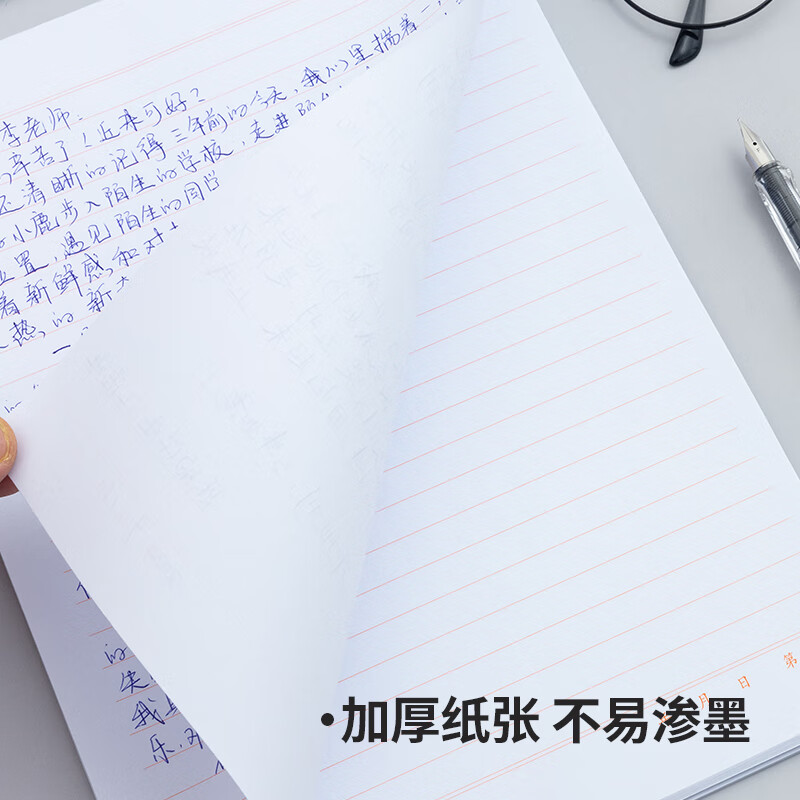 李老师:
辛苦了!近来可好?
还清晰的记得三年前的今天,我们里揣着一
小鹿步入陌生的学校,走进
位置,遇见陌生的同学
着新鲜感,和对
热的新
一
的
失
我
乐.
月 日 第
•加厚纸张 不易渗墨